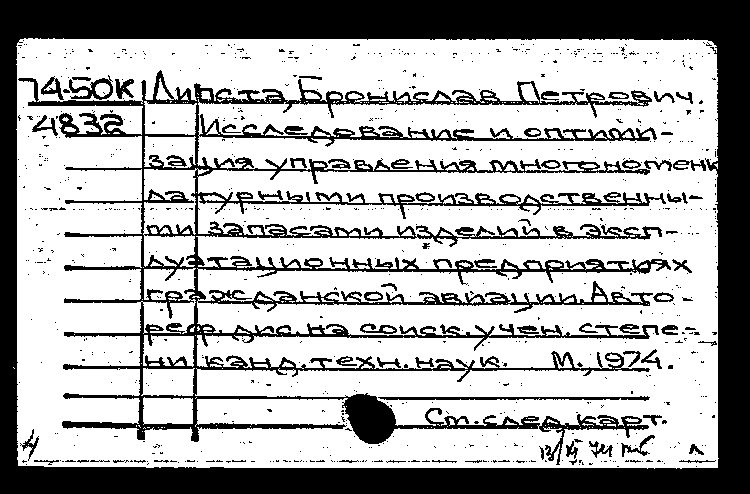 74-50К Липста, Бронислав Петрович.
4832 Исследование и оптими-
зация управления многономенк
латурными производственны-
ми запасами изделий в эксп-
луатационных предприятиях
гражданской авиации. Авто-
реф. дис. на соиск. учен. степе-
ни канд. техн. наук. М., 1974.
Ст. след. карт.
4